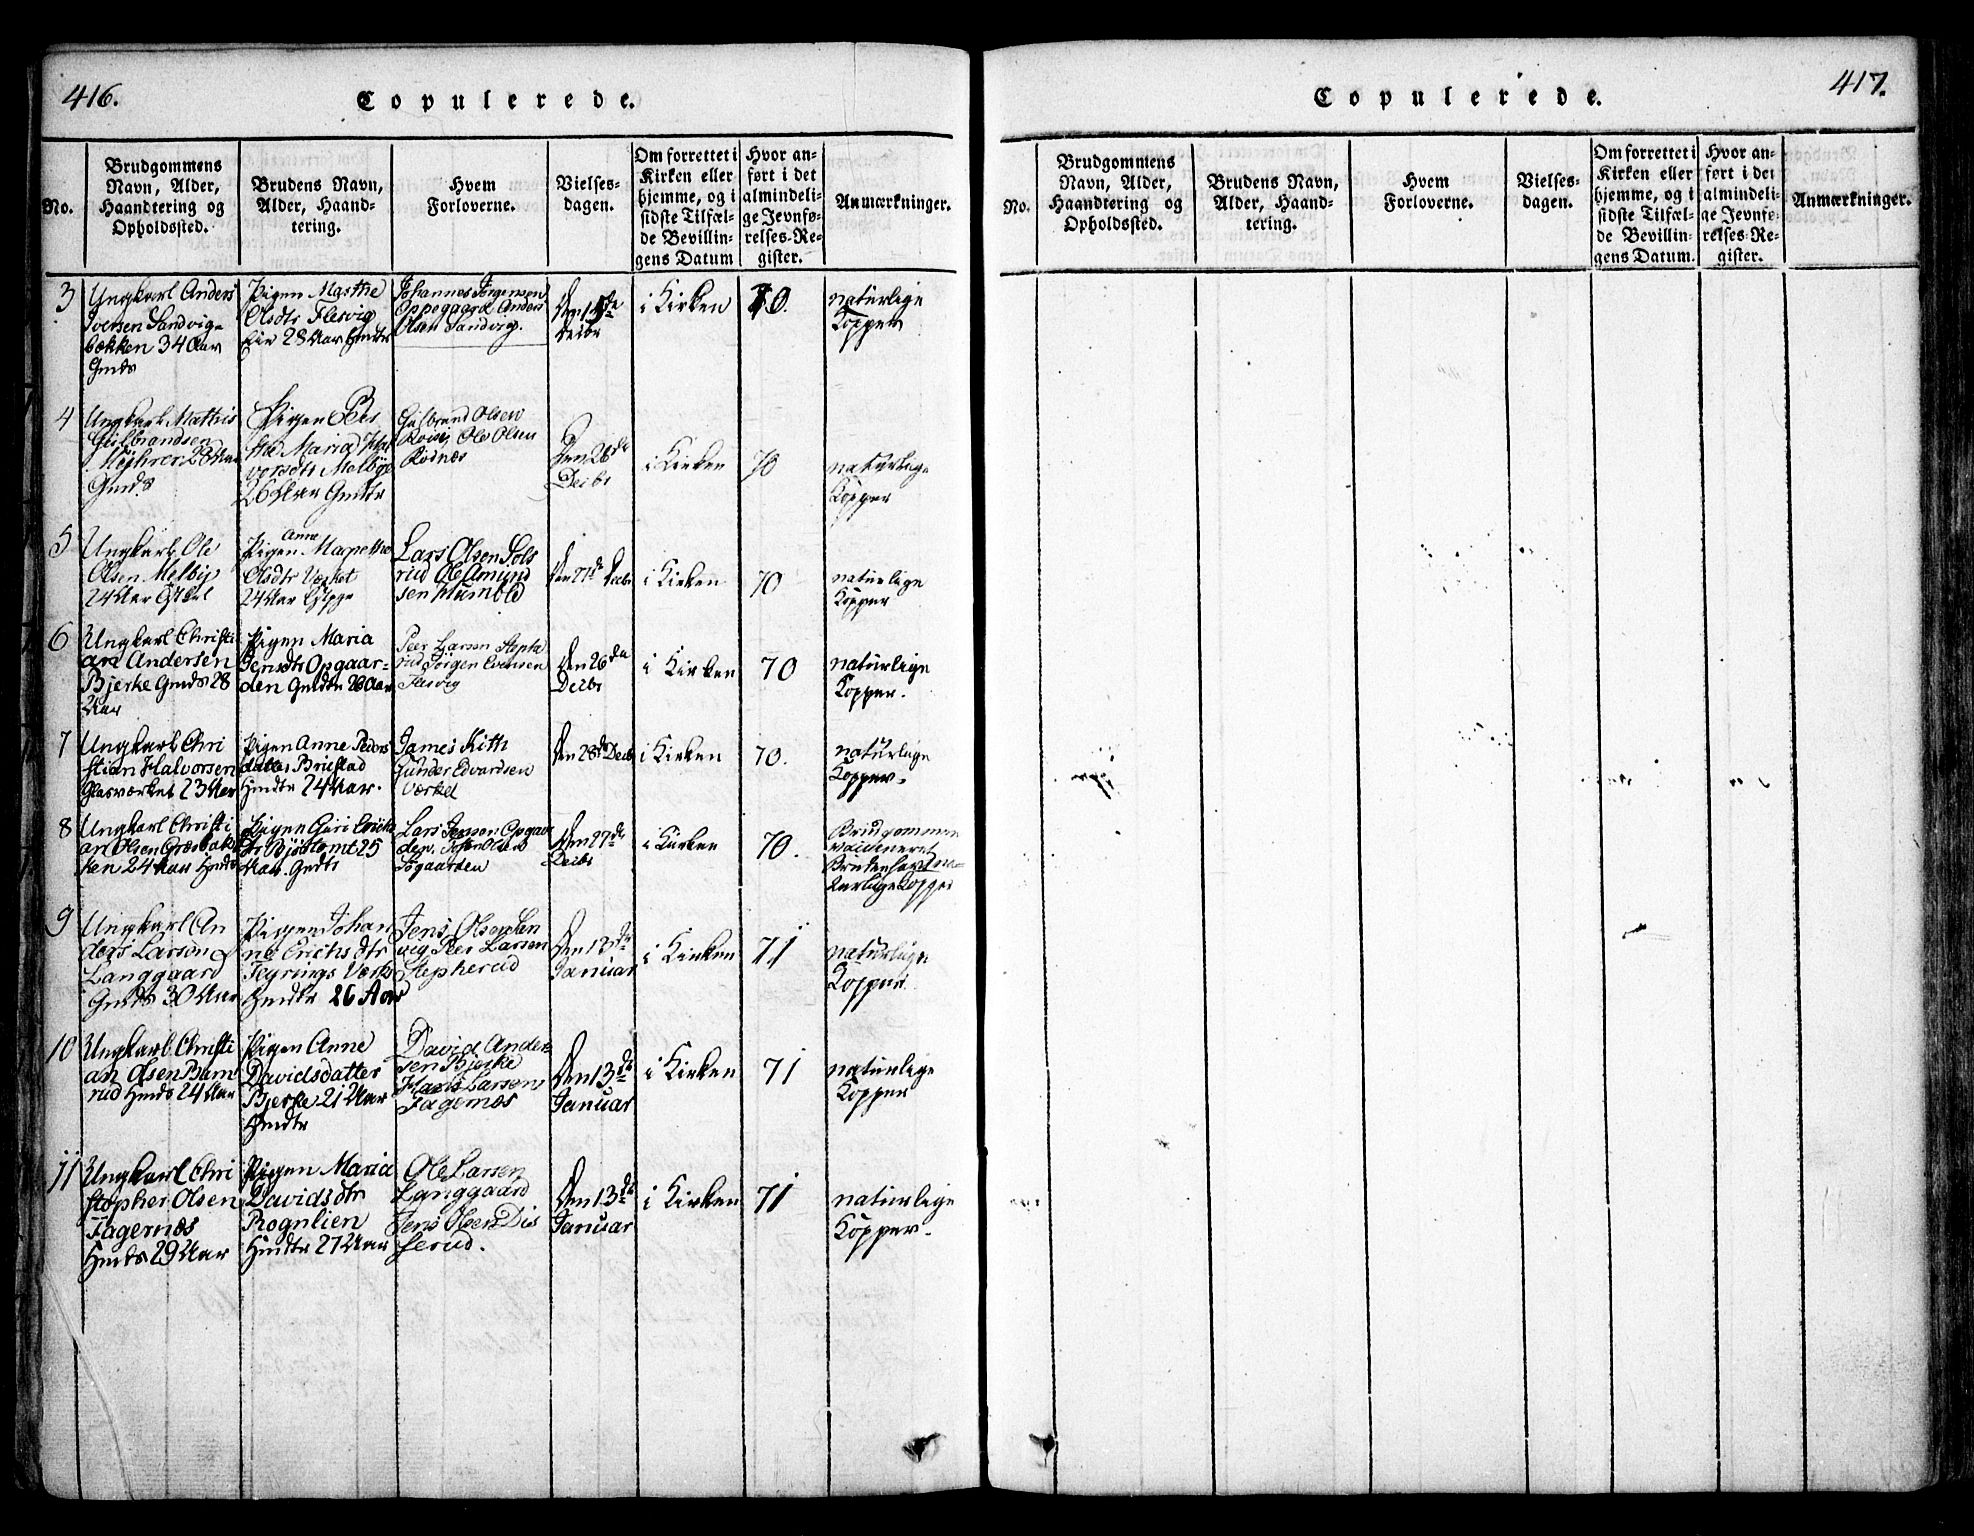 416.
Copulerede.
No.
Brudgommens
Navn, Alder,
Haandtering og
Opholdssted.
Brudens Navn,
Alder, Haand-
tering.
Hvem
Forloverne.
Vielses-
dagen.
Om forrettet i
Kirken eller
hjemme, og i
sidste Tilfæl-
de Bevillin-
gens Datum
Hvor an-
ført i det
almindeli-
ge Jevnfø-
relses-Re-
gister.
Anmærkninger.
3
Ungkarl Anders
Iversen Sandvig-
bækken 34 Aar
Gmds
Pigen Marthe
Olsdtr Flesvig
Eie 28 Aar Gmdtr
Johannes Jørgensen
Oppegaard Anders
Olsen Sandvig.
Den
Decbr
i Kirken
70.
naturlige
Kopper
4
Ungkarl Mathis
Gulbrandsen
28 Aar
Gmds
Pigen Bir
the Maria Hal
vorsdtr Melbye
26 Aar Gmdtr
Gulbrand Olsen
Ole Olsen
Rodnæs
Den 26de
Decbr
i Kirken
70
naturlige
Kopper
5
Ungkarl Ole
Olsen Melby
24 Aar
Pigen Anne Marethe
Olsdtr Værket
24 Aar
Lars Olsen Sols
rud Ole Amund
sen Humble
Den 27de Decbr
i Kirken
70
naturlige
Kopper
6
Ungkarl Christi
an Andersen
Bjerke Gmds 28
Aar
Pigen Maria
Jensdtr Opgaar-
den Gmdtr 28 Aar
Peer Larsen Stephe
rud Jørgen Evensen
Flesvig
Den 26de
Decbr
i Kirken
70
naturlige
Kopper.
7
Ungkarl Chri
stian Halvorsen
Glasværket 23 Aar
Pigen Anne Peders
datter Brustad
Hmdtr 24 Aar.
James Kith
Gunder Edvardsen
Værket
Den 28de Decbr
i Kirken
70.
naturlige
Kopper.
8
Ungkarl Christi
an Olsen Græsbak
ken 24 Aar Hmds
Pigen Guri Erichs
dtr Bjørtomt 25
Aar. Gmdtr
Lars Jensen Opgaar
den. John Olsen
Søgaarden
Den 27de
Decbr
i Kirken
70.
Brudgommen
vaccineret
Bruden havt na-
turlige Kopper
9
Ungkarl An
ders Larsen
Langgaard
Gmds 30 Aar
Pigen Johan
ne Erichsdtr
Feyrings Værk
Hmdtr 26 Aar
Jens Olsen San
vig Peer Larsen
Stepherud
Den 13de
Januar
i Kirken
71
naturlige
Kopper
10
Ungkarl Christi
an Olsen Ram
rud Hmds 24 Aar
Pigen Anne
Davidsdatter
Bjerke 21 Aar
Hmdtr
David Ander
sen Bjerke
Hans Larsen
Fagernæs
Den 13de
Januar
i Kirken
71
naturlige
Kopper
11
Ungkarl Chri
stopher Olsen
Fagernæs
Hmds 29 Aar
Pigen Maria
Davidsdtr
Rognlien
Hmdtr 27 Aar
Ole Larsen
Langgaard
Jens Olsen Dis
serud.
Den 13de
Januar
i Kirken
71
naturlige
Kopper.
417.
Copulerede.
No.
Brudgommens
Navn, Alder,
Haandtering og
Opholdssted.
Brudens Navn,
Alder, Haand-
tering.
Hvem
Forloverne.
Vielses-
dagen.
Om forrettet i
Kirken eller
hjemme, og i
sidste Tilfæl-
de Bevillin-
gens Datum.
Hvor an-
ført i det
almindeli-
ge Jevnfø-
relses-Re-
gister.
Anmærkninger.